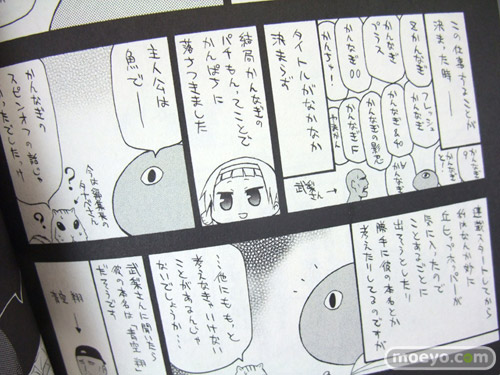 この仕事することが
決まった時――
フレッシュ
かんなぎ
かんなぎ&かの
かんなぎの影忍
かんなぎF
かんなぎ
9
かんなぎ
プラス
かんなぎ00
かんちぃ!
タイトルがなかなか
決まらず
武梨さん
結局かんなぎの
パチもんってことで
かんぱちに
落ちつきました
主人公は
魚で――
かんなぎの
スピンオフの話じゃ
なかったでしたっけ
?
?
今は編集長の
連載スタートしてから
ヒップホッパーが
気に入ったので
ことあるごとに
出そうとしたり
勝手に彼の本名とか
考えたりしてるのですが
…他にももっと
考えなきゃいけない
ことがあるんじゃ
ないでしょうか…
武梨さんに聞いたら
彼の本名は「青空翔」
だそうです
翔
moeyo.com